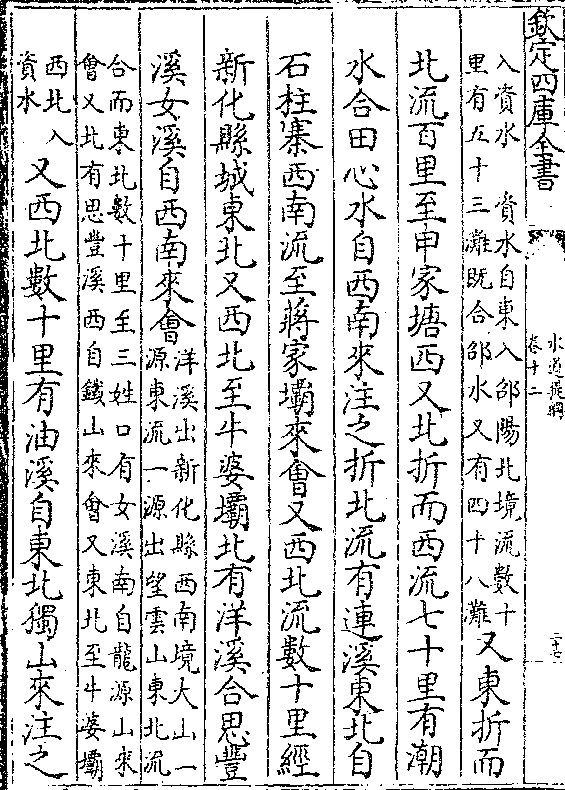 欽定四庫全書
水道提綱
卷十二
二十七
入資水　資水自東入邵陽北境流數十
里有五十三灘既合邵水又有四十八灘
又東折而
北流百里至申家塘西又北折而西流七十里有潮
水合田心水自西南來注之折北流有連溪東北自
石柱寨西南流至蔣家壩來會又西北流數十里經
新化縣城東北又西北至牛婆壩北有洋溪合思豐
溪女溪自西南來會
洋溪出新化縣西南境大山一
源東流一源出望雲山東北流
合而東北數十里至三姓口有女溪南自龍源山來
會又北有思豐溪西自鐵山來會又東北至牛婆壩
西北入
資水
又西北數十里有油溪自東北獨山來注之